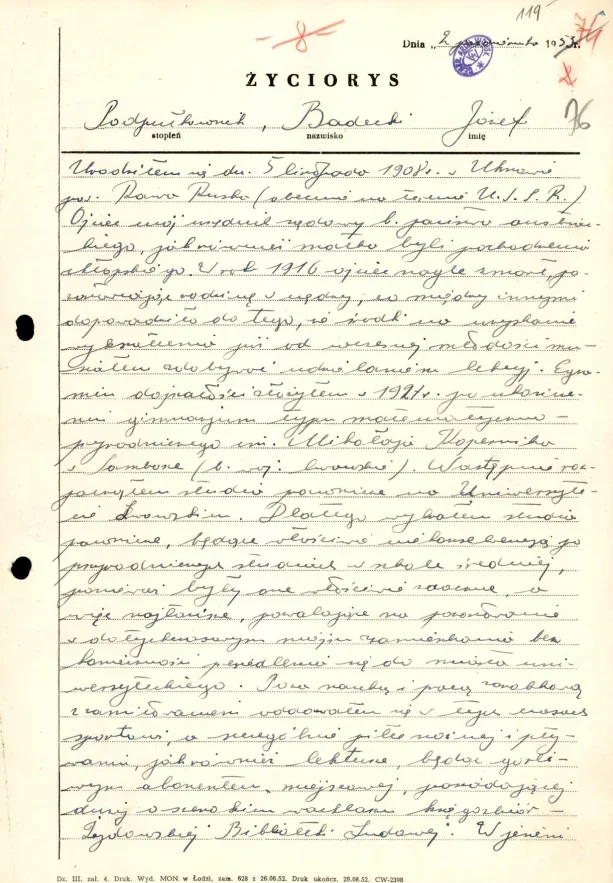 119
-8-
74
8
76
Dnia „2 października 1953 r.
ŻYCIORYS
Podpułkownik, Badecki Józef
stopień nazwisko imię
Urodziłem się dn. 5 listopada 1908 r. w Uhnowie
pow. Rawa Ruska (obecnie na terenie U.S.S.R.)
Ojciec mój urzędnik sądowy b. zaboru austriac-
kiego, jak również matka byli pochodzenia
chłopskiego. W rok 1916 ojciec nagle zmarł, po-
zostawiając rodzinę w nędzy, co między innymi
doprowadziło do tego, że środki na uzyskanie
wykształcenia już od wczesnej młodości mu-
siałem zdobywać udzielaniem lekcji. Egza-
min dojrzałości złożyłem w 1927 r. po ukończe-
niu gimnazjum typu matematyczno-
przyrodniczego im. Mikołaja Kopernika
w Samborze (b. woj. lwowskie). Następnie roz-
począłem studia prawnicze na Uniwersyte-
cie Lwowskim. Dlatego wybrałem studia
prawnicze, będące właściwie niekonsekwencją po
przyrodniczych studiach w szkole średniej,
ponieważ były one właściwie zaoczne, a
więc najtańsze, pozwalające na pozostawanie
w dotychczasowym miejscu zamieszkania bez
konieczności przesiedlenia się do miasta uni-
wersyteckiego. Poza nauką i pracą zarobkową
z zamiłowaniem oddawałem się w tych czasach
sportowi, a szczególnie piłce nożnej i pły-
waniu, jak również lekturze, będąc gorli-
wym abonentem, miejscowej, posiadającej
duży o szerokim wachlarzu księgozbiór -
Żydowskiej Biblioteki Ludowej. W jesieni
Dz. III. zał. 4. Druk. Wyd. MON. w Łodzi, zam. 628 z 26.06.52. Druk ukończ. 28.08.52. CW-2398